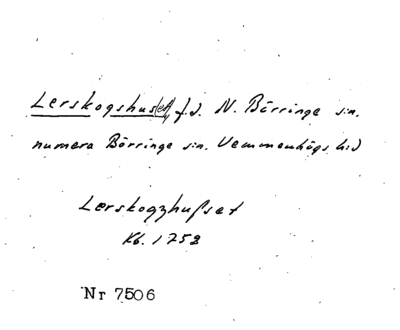 Lerskogshus(et), f.d. N. Börringe sn.
numera Börringe sn. Vemmenhögs hd
Lerskogzhußet
Kb. 1758
Nr 7506